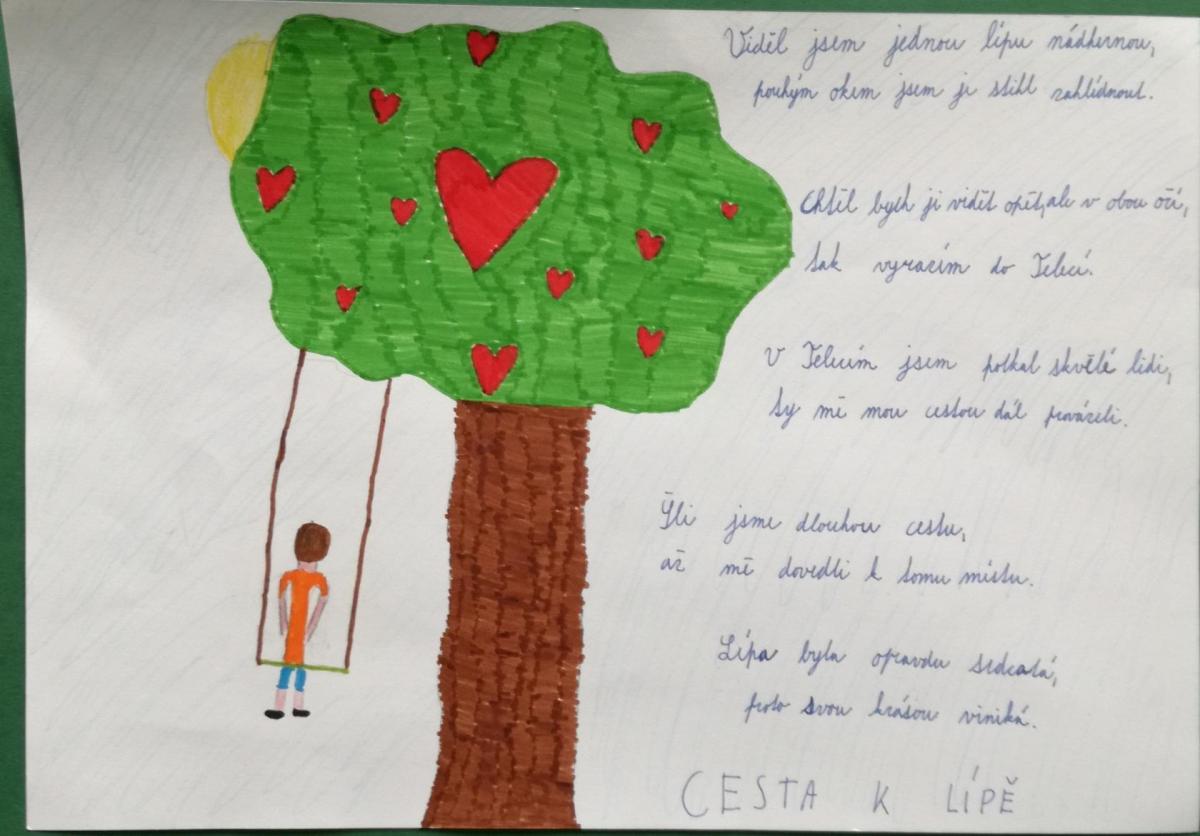 Viděl jsem jednou lípu nádhernou,
pouhým okem jsem ji stihl zahlédnout.
Chtěl bych ji vidět opět, ale v obou očí,
tak vyrazím do Telecí.
V Telecím jsem potkal skvělé lidi,
ty mě mou cestou dál provázeli.
Šli jsme dlouhou cestu,
až mě dovedli k tomu místu.
Lípa byla opravdu srdcatá,
proto svou krásou viniká.
CESTA K LÍPĚ